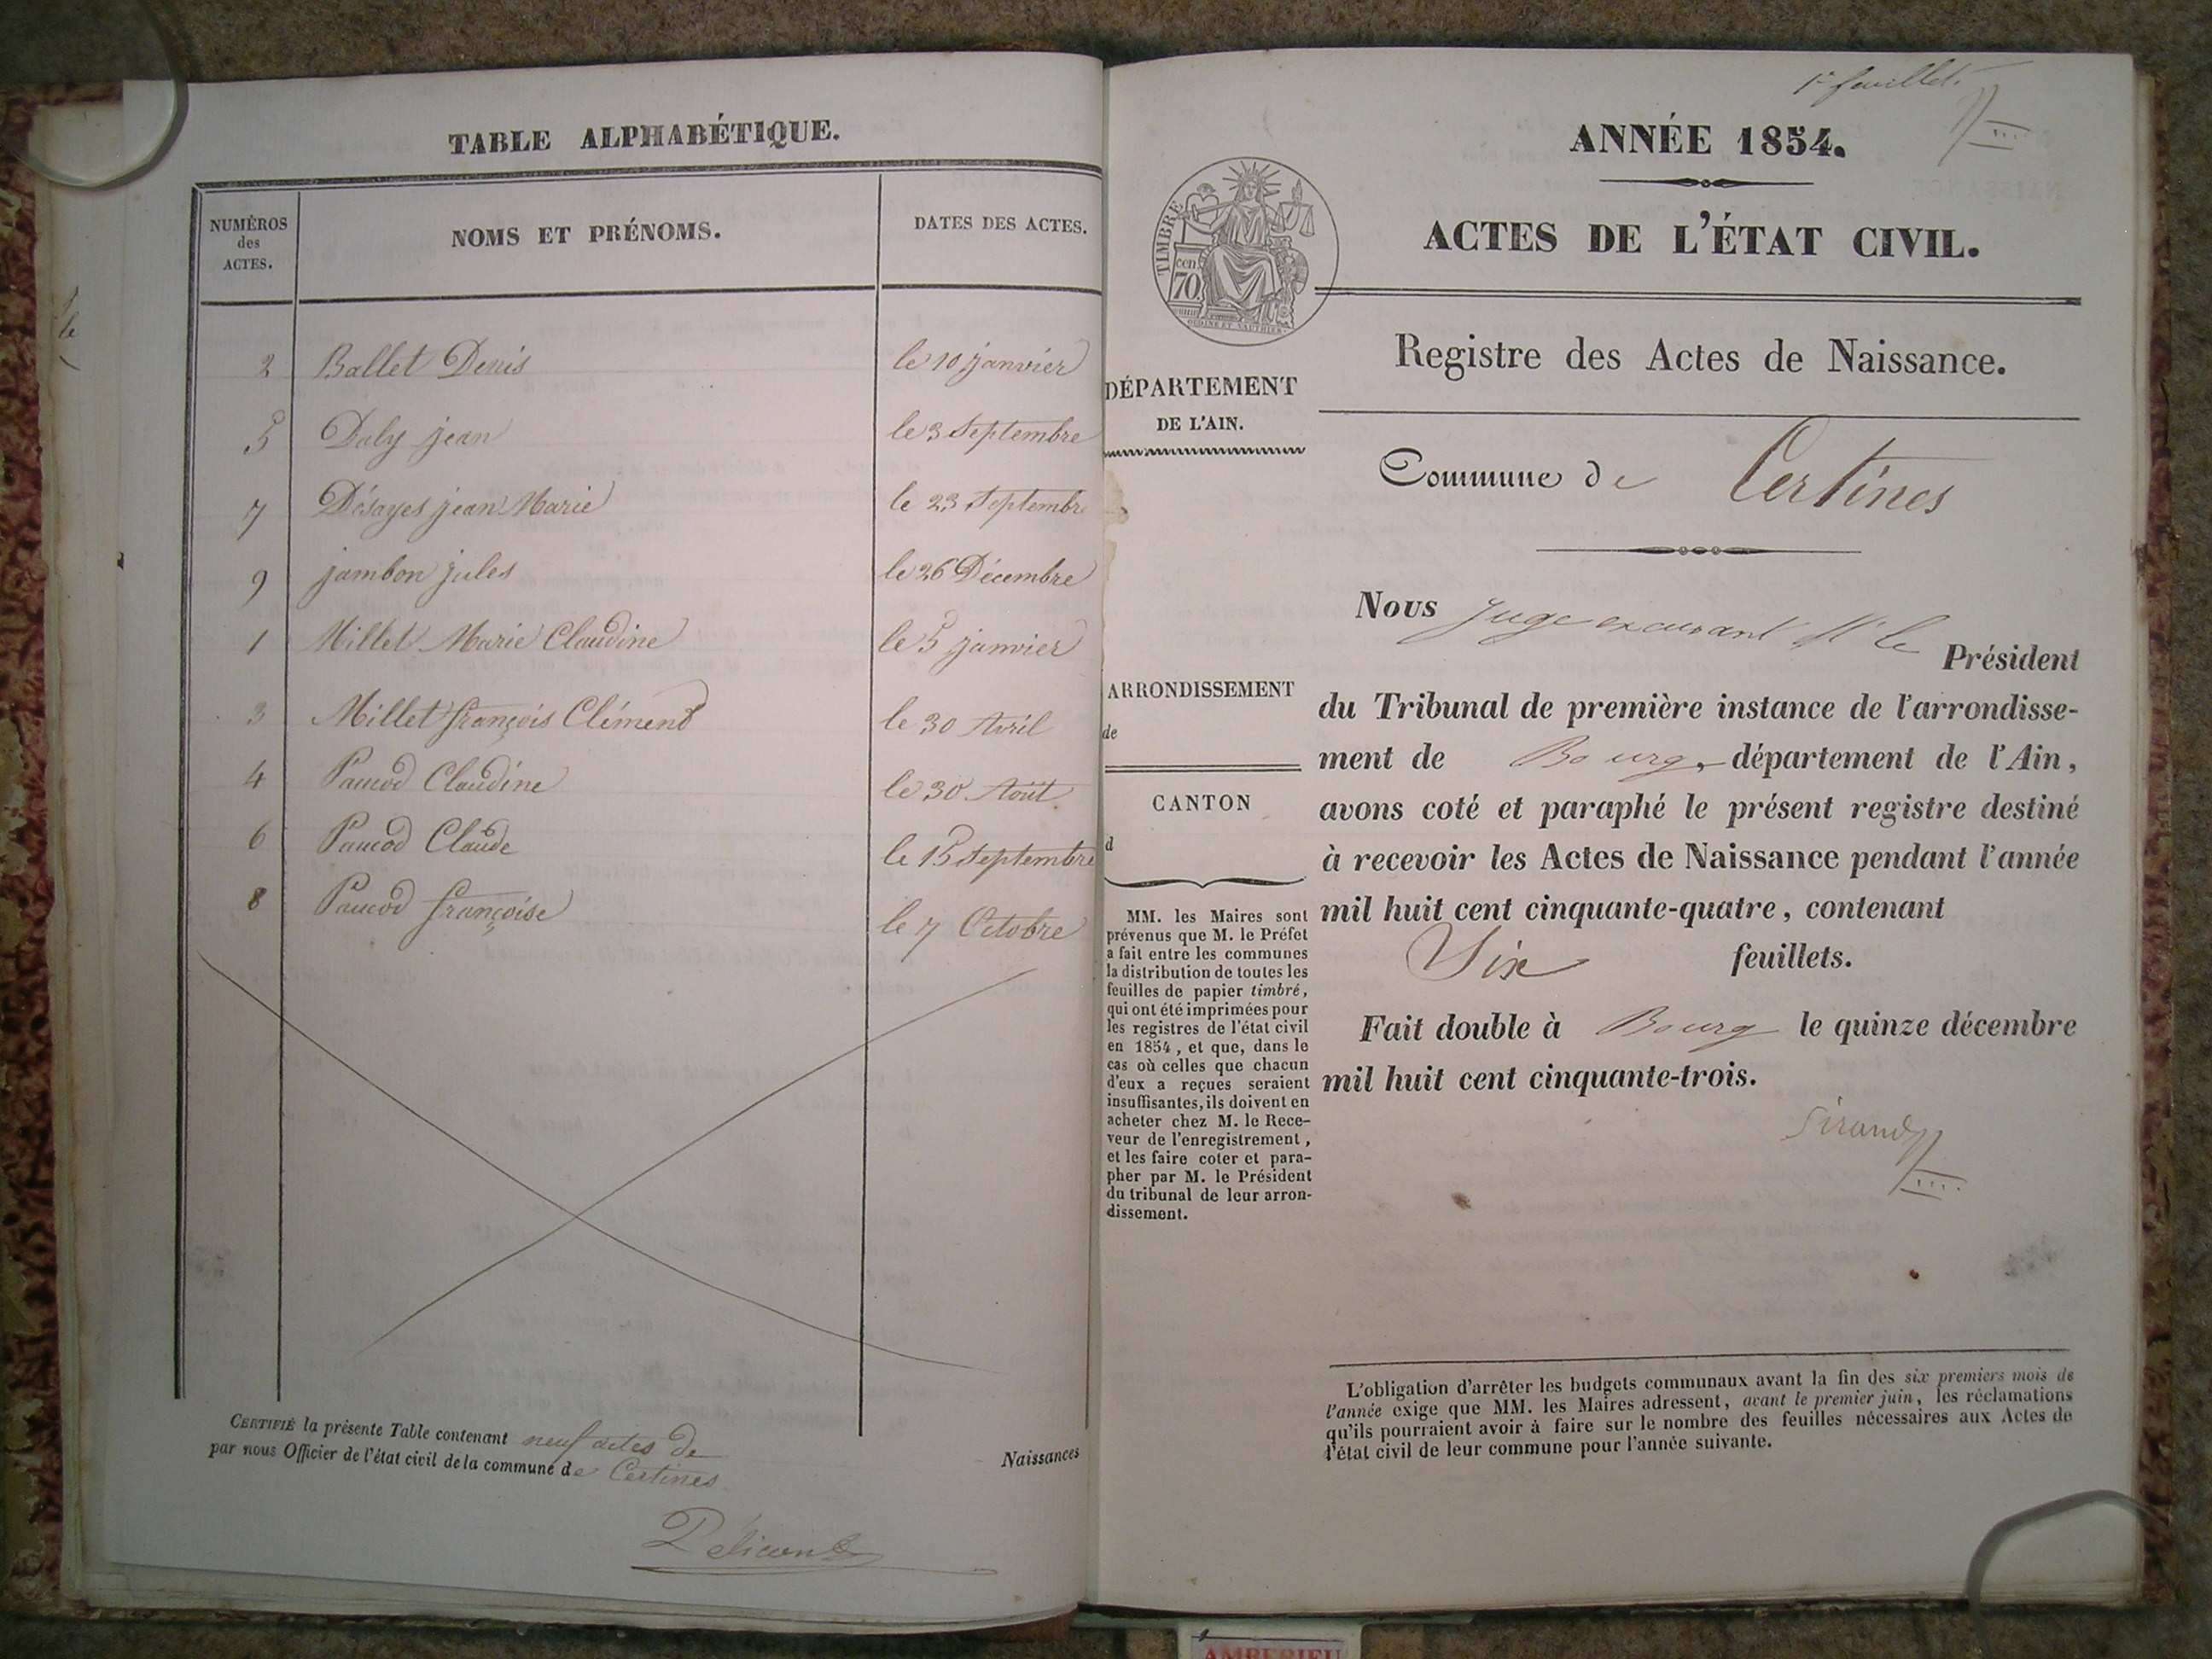 TABLE ALPHABÉTIQUE.
NUMÉROS
des
ACTES.
NOMS ET PRÉNOMS.
DATES DES ACTES.
2 Ballet Denis le 10 janvier
5 Daly jean le 3 Septembre
7 Désayes jean Marie le 23 Septembre
9 jambon jules le 26 Décembre
1 Millet Marie Claudine le 5 janvier
3 Millet françois Clément le 30 Avril
4 Paucod Claudine le 30 Août
6 Paucod Claude le 15 Septembre
8 Paucod françoise le 7 Octobre
CERTIFIÉ la présente Table contenant neuf actes de Naissances
par nous Officier de l'état civil de la commune de Certines
1er feuillet.
ANNÉE 1854.
ACTES DE L'ÉTAT CIVIL.
TIMBRE
70 cen
OUDINE ET VAUTHIER
Registre des Actes de Naissance.
DÉPARTEMENT
DE L'AIN.
Commune de Certines
ARRONDISSEMENT
de
CANTON
d
MM. les Maires sont
prévenus que M. le Préfet
a fait entre les communes
la distribution de toutes les
feuilles de papier timbré,
qui ont été imprimées pour
les registres de l'état civil
en 1854, et que, dans le
cas où celles que chacun
d'eux a reçues seraient
insuffisantes, ils doivent en
acheter chez M. le Rece-
veur de l'enregistrement,
et les faire coter et para-
pher par M. le Président
du tribunal de leur arron-
dissement.
Nous Juge excusant Mr le Président
du Tribunal de première instance de l'arrondisse-
ment de Bourg, département de l'Ain,
avons coté et paraphé le présent registre destiné
à recevoir les Actes de Naissance pendant l'année
mil huit cent cinquante-quatre, contenant
Six feuillets.
Fait double à Bourg le quinze décembre
mil huit cent cinquante-trois.
Sirand
L'obligation d'arrêter les budgets communaux avant la fin des six premiers mois de
l'année exige que MM. les Maires adressent, avant le premier juin, les réclamations
qu'ils pourraient avoir à faire sur le nombre des feuilles nécessaires aux Actes de
l'état civil de leur commune pour l'année suivante.
AMBERIEU